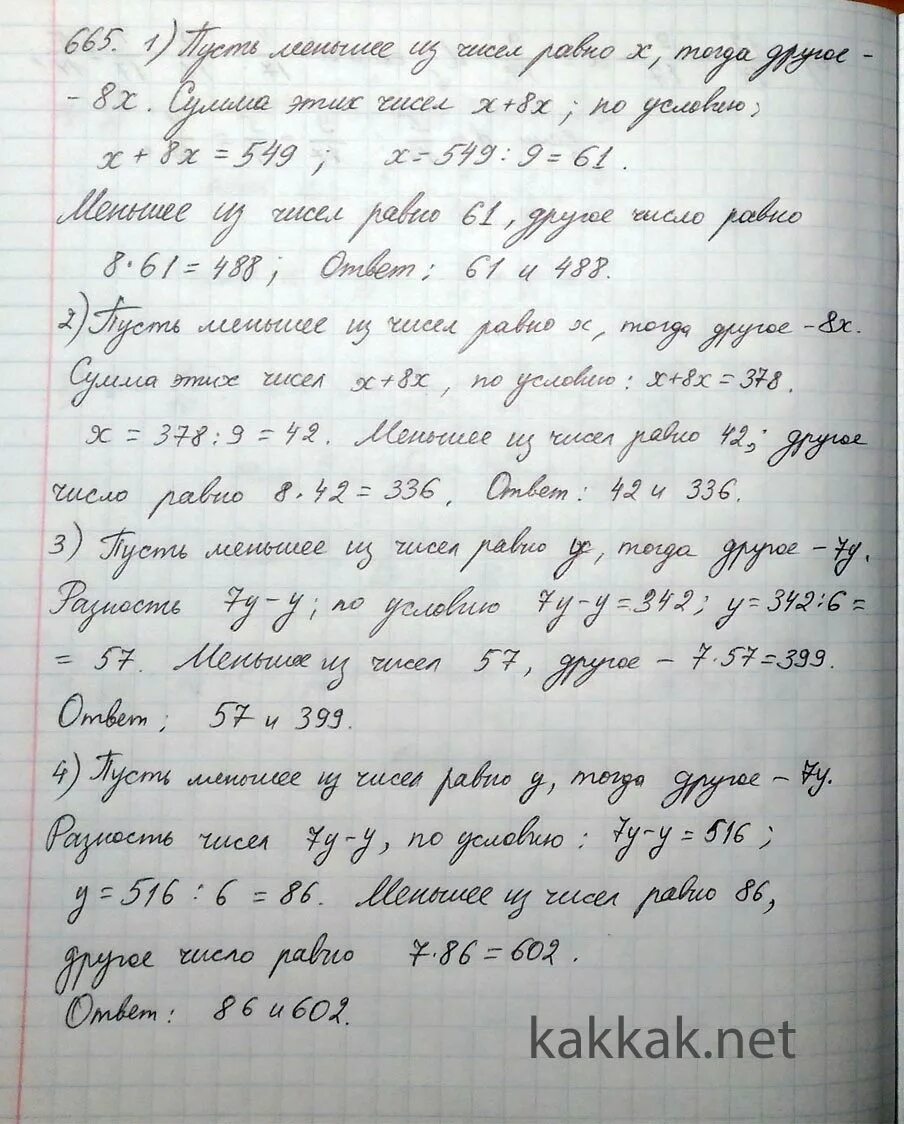 665. 1) Пусть меньшее из чисел равно x, тогда другое -
- 8x. Сумма этих чисел x+8x ; по условию;
x + 8x = 549 ; x = 549 : 9 = 61 .
Меньшее из чисел равно 61 , другое число равно
8·61 = 488 ; Ответ : 61 и 488.
2) Пусть меньшее из чисел равно x, тогда другое - 8x.
Сумма этих чисел x+8x , по условию : x+8x = 378.
x = 378 : 9 = 42. Меньшее из чисел равно 42,; другое
число равно 8·42 = 336. Ответ : 42 и 336.
3) Пусть меньшее из чисел равно y, тогда другое - 7y.
Разность 7y-y ; по условию 7y-y = 342 ; y = 342 : 6 =
= 57. Меньшее из чисел 57 , другое - 7·57 = 399.
Ответ ; 57 и 399.
4) Пусть меньшее из чисел равно y, тогда другое - 7y.
Разность чисел 7y-y , по условию : 7y-y = 516 ;
y = 516 : 6 = 86. Меньшее из чисел равно 86,
другое число равно 7·86 = 602 .
Ответ : 86 и 602.
kakkak.net